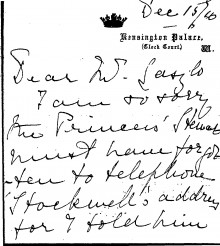 Dec 15/40
Kensington Palace,
(Clock Court) W.
Dear Mr.
I am so sorry
the Princess'
must have for
-ten to telephone
Stockwell's addres
for I told him